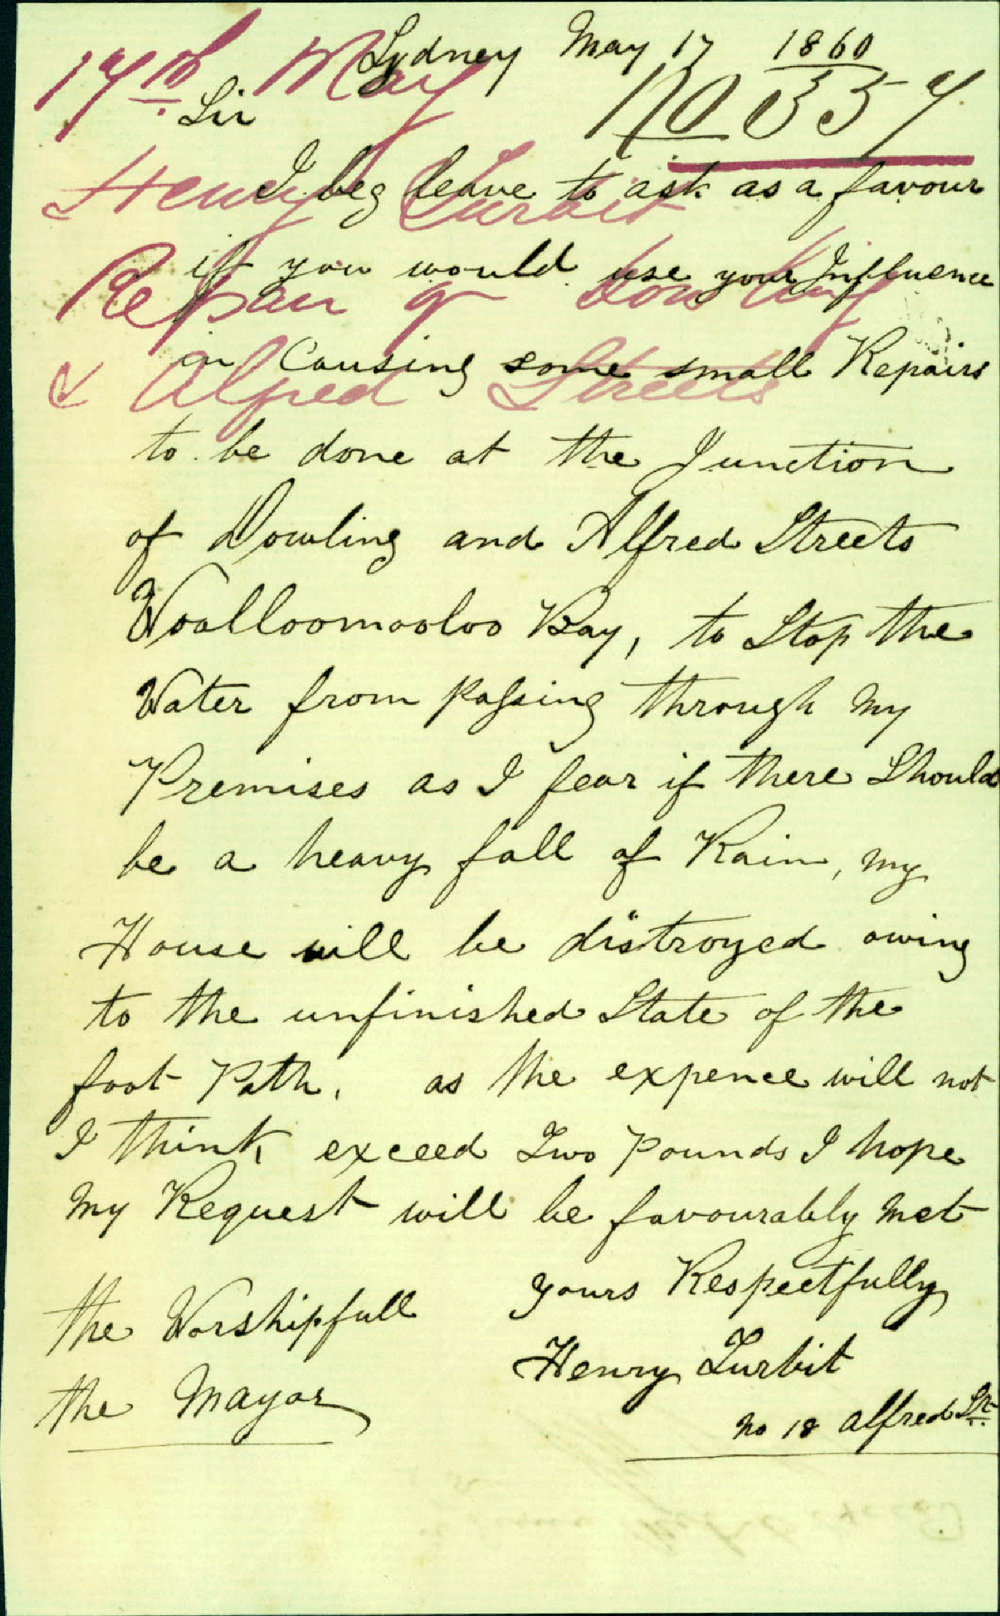 Sydney May 17 1860
17th May
No 357
Sir
I beg leave to ask as a favour
Henry Turbit
if you would use your Influence
Repair of Dowling
in Causing some small Repairs
& Alfred Streets
to be done at the Junction
of Dowling and Alfred Streets
Woolloomooloo Bay, to Stop the
Water from passing through my
Premises as I fear if there Should
be a heavy fall of Rain, my
House will be distroyed owing
to the unfinished State of the
foot Path. as the expence will not
I think exceed Two Pounds I hope
my Request will be favourably met
yours Respectfully
the Worshipfull
Henry Turbit
the Mayor
No 18 Alfred St